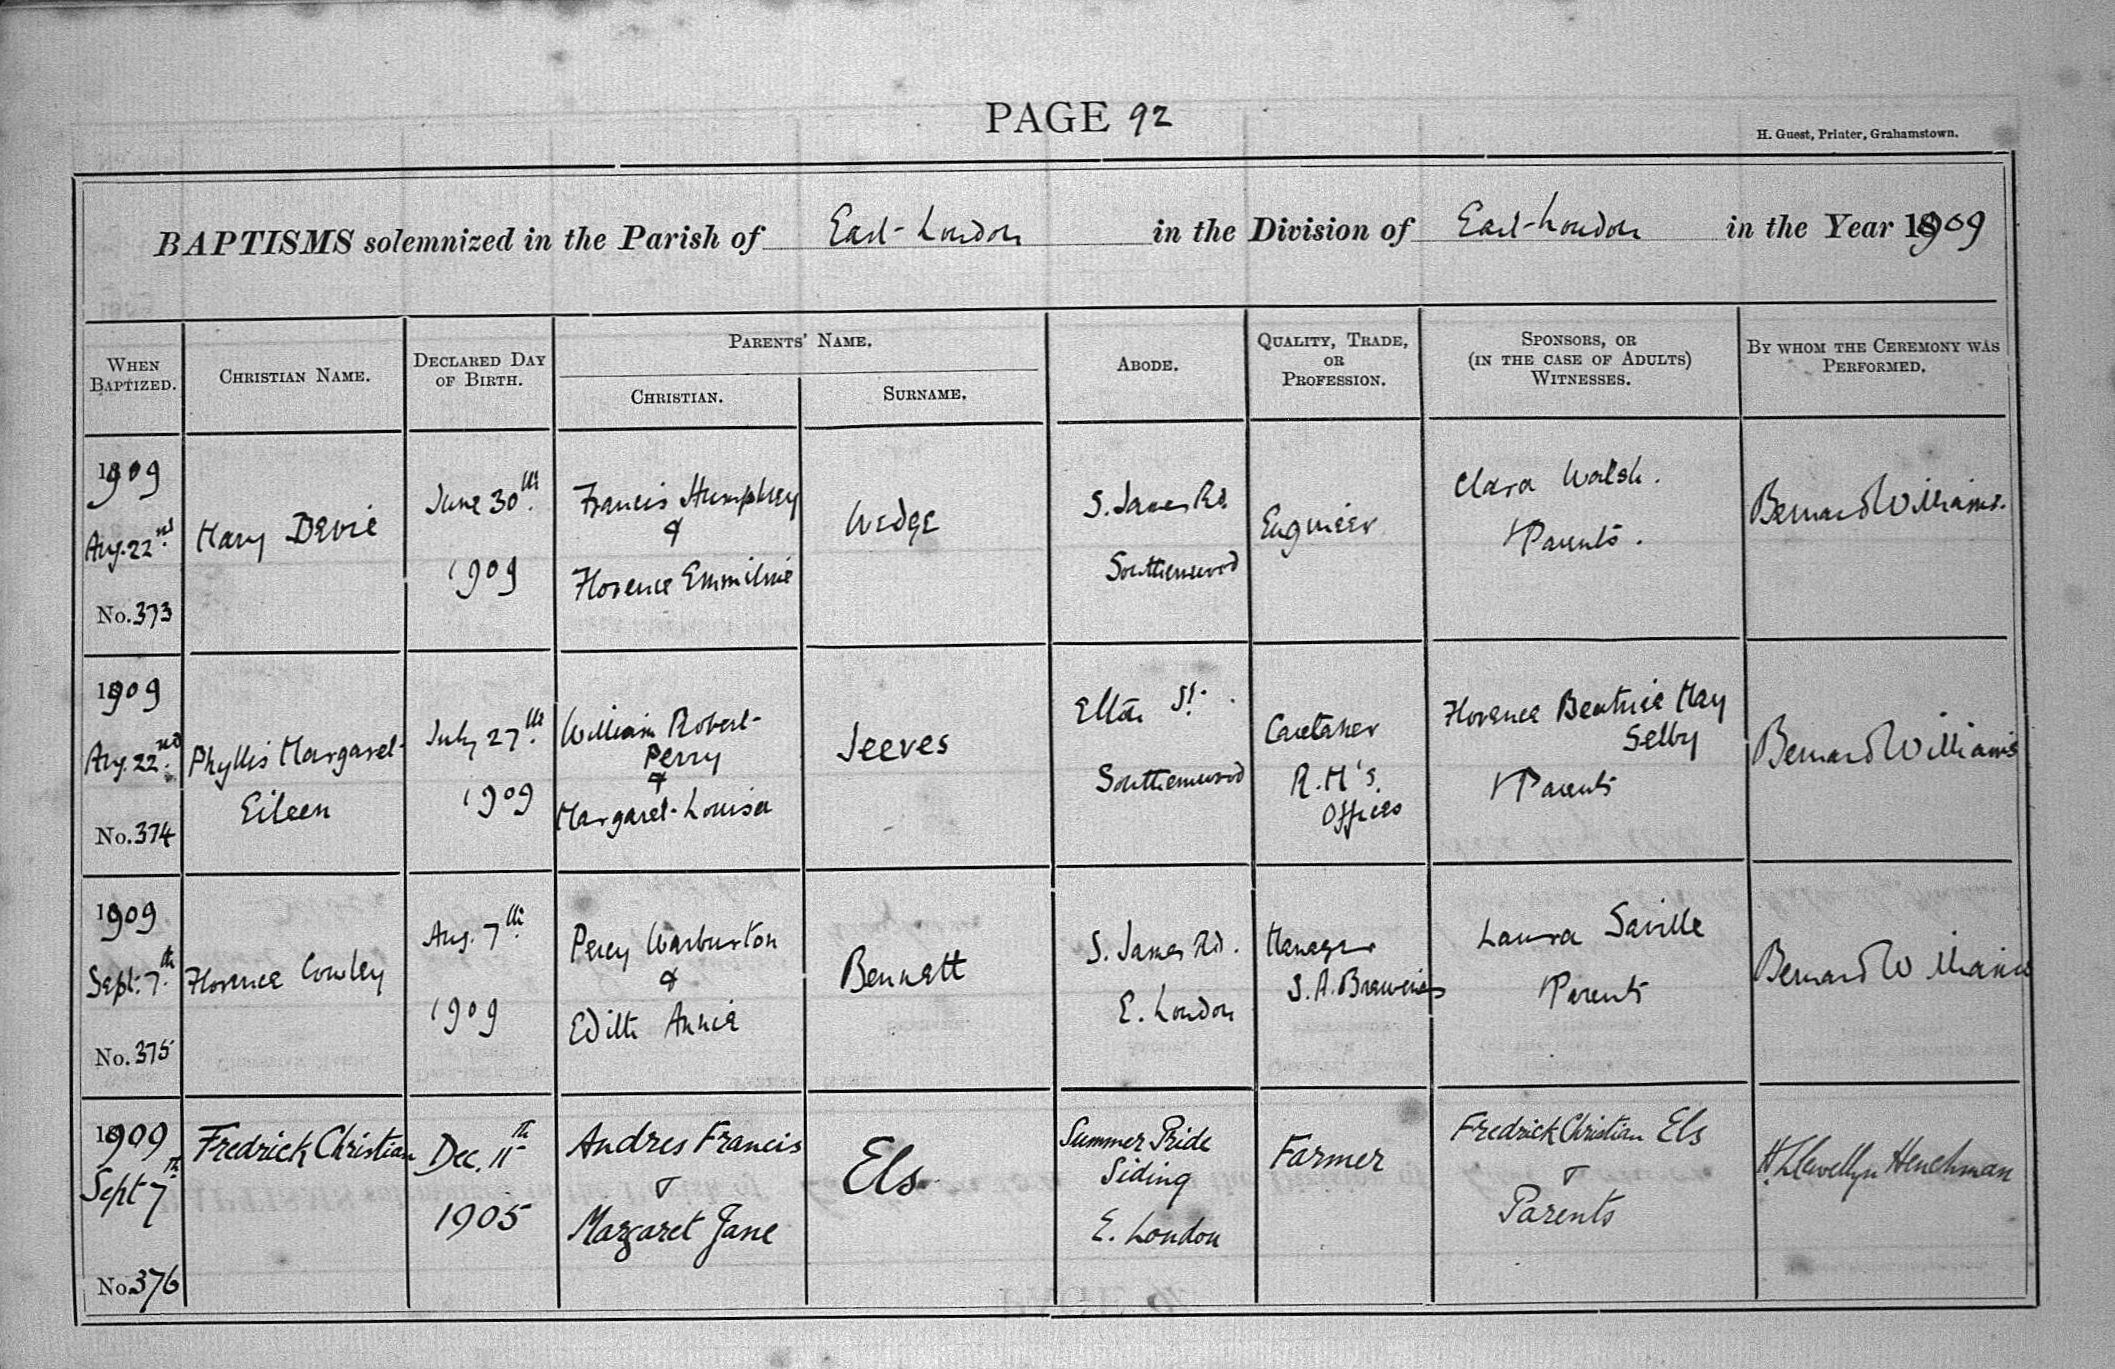 PAGE 92
H. Guest, Printer, Grahamstown.
BAPTISMS solemnized in the Parish of East-London in the Division of East-London in the Year 1909
WHEN BAPTIZED.
CHRISTIAN NAME.
DECLARED DAY OF BIRTH.
PARENTS' NAME.
CHRISTIAN.
SURNAME.
ABODE.
QUALITY, TRADE, OR PROFESSION.
SPONSORS, OR (IN THE CASE OF ADULTS) WITNESSES.
BY WHOM THE CEREMONY WAS PERFORMED.
1909
Aug. 22nd
No. 373
Mary Devie
June 30th
1909
Francis Humphrey
&
Florence Emmiline
Wedge
S. James Rd.
Southernwood
Engineer
Clara Walsh.
& Parents.
Bernard Williams.
1909
Aug. 22nd.
No. 374
Phyllis Margaret
Eileen
July 27th.
1909
William Robert
Perry
&
Margaret Louisa
Jeeves
Elton St.
Southernwood
Caretaker
R. M's.
Offices
Florence Beatrice May
Selby
& Parents
Bernard Williams
1909
Sept. 7th
No. 375
Florence Cowley
Aug. 7th.
1909
Percy Warburton
&
Edith Annie
Bennett
S. James Rd.
E. London
Manager
S. A. Breweries
Laura Saville
& Parents
Bernard Williams
1909
Sept 7th
No. 376
Fredrick Christian
Dec. 11th
1905
Andres Francis
&
Margaret Jane
Els
Summer Pride
Siding
E. London
Farmer
Fredrick Christian Els
&
Parents
H. Llewellyn Henchman